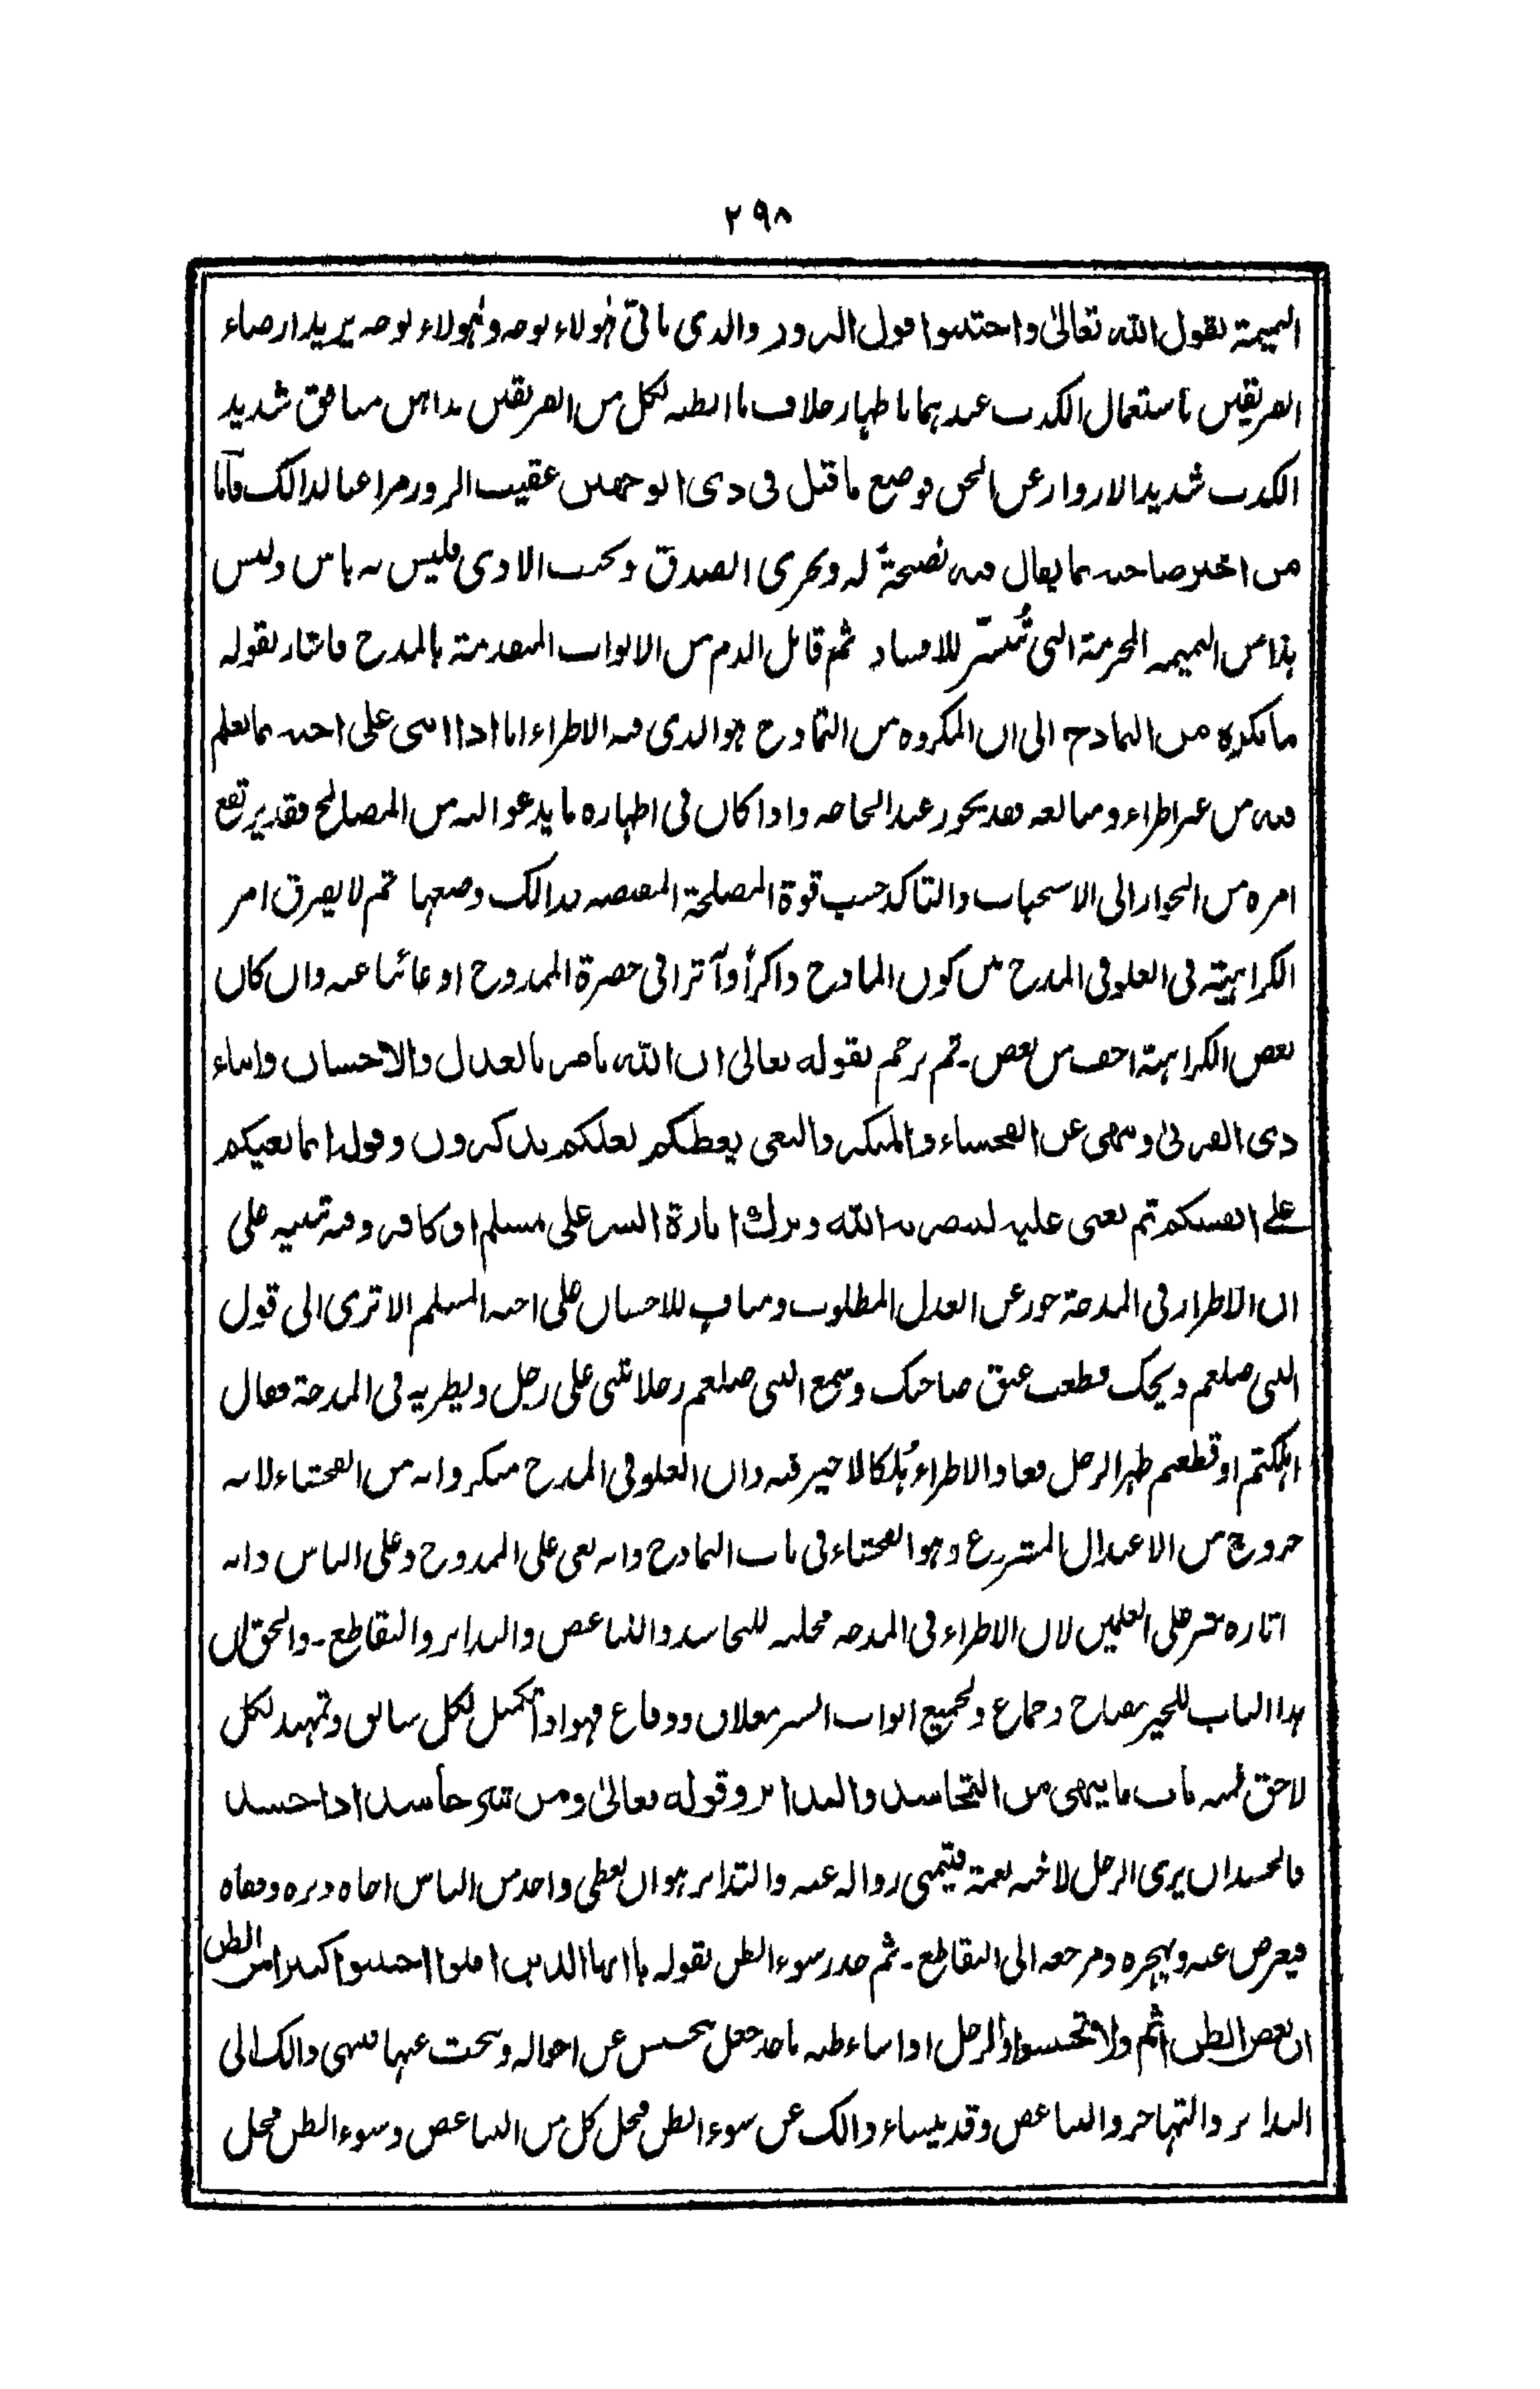 ٢٩٨
النميمة بقول الله تعالى واجتنبوا قول الزور والذى ياتى هؤلاء بوجه وهؤلاء بوجه يريد ارضاء
الفريقين باستعمال الكذب عندهما باظهار خلاف ما ابطنه لكل من الفريقين مداهن منافق شديد
الكذب شديد الازورار عن الحق فوضع ما قيل فى ذى الوجهين عقيب الزور مراعيا لذالك فاما
من اخبر صاحبه بما يقال فيه نصيحةً له ويحرى الصدق وتجنب الاذى فليس به باس وليس
هذا من النميمه المحرمة التى تُنشَر للافساد ثم قابل الذم من الابواب المتقدمة بالمدح فاشار بقوله
ما يكره من التمادح الى ان المكروه من التمادح هو الذى فيه الاطراء اما اذا اثنى على اخيه بما يعلم
فيه من غير اطراء ومبالغه فقد يجوز عند الحاجه واذا كان فى اظهاره ما يدعو اليه من المصالح فقد يرتفع
امره من الجواز الى الاستحباب والتاكد حسب قوة المصلحة المقتضيه لذالك وضعفها ثم لا يفرق امر
الكراهية فى الغلو فى المدح من كون المادح ذاكراً وآثرا فى حضرة الممدوح او غائبا عنه وان كان
بعض الكراهة اخف من بعض۔ ثم ترجم بقوله تعالى ان الله يامر بالعدل والاحسان وايتاء
ذى القربى وينهى عن الفحشاء والمنكر والبغى يعظكم لعلكم تذكرون وقوله انما بغيكم
على انفسكم ثم بغى عليه لينصرنه الله وترك اثارة الشر على مسلم او كافر وفيه تنبيه على
ان الاطراء فى المدحة جور عن العدل المطلوب ومناف للاحسان على اخيه المسلم الا ترى الى قول
النبى صلعم ويحك قطعت عنق صاحبك وسمع النبى صلعم رجلا يثنى على رجل ويطريه فى المدحة فقال
اهلكتم او قطعتم ظهر الرجل فعاد الاطراء هُلكا لا خير فيه وان الغلو فى المدح منكر وانه من الفحشاء لانه
خروج من الاعتدال المشروع وهو الفحشاء فى باب التمادح وانه بغى على الممدوح وعلى الناس وانه
اثاره شر على العلمين لان الاطراء فى المدحه مجلبه للتحاسد والتباغض والتدابر والتقاطع۔ والحق ان
هذا الباب للخير مفتاح وجماع ولجميع ابواب الشر مغلاق ودفاع فهو اذاً تكميل لكل سابق وتمهيد لكل
لاحق ثمه باب ما ينهى من التحاسد والتدابر وقوله تعالى ومن شر حاسد اذا حسد
فالحسد ان يرى الرجل لاخيه نعمة فيتمنى زواله عنه والتدابر هو ان يعطى واحد من الناس اخاه دبره وقفاه
فيعرض عنه ويهجره ومرجعه الى التقاطع۔ ثم حذر سوء الظن بقوله يا ايها الذين امنوا اجتنبوا كثيرا من الظن
ان بعض الظن اثم ولا تجسسوا والرجل اذا ساء ظنه باحد جعل يتجسس عن احواله ويبحث عنها فينتهى ذالك الى
التدابر والتهاجر والتباغض وقد ينشاء ذالك عن سوء الظن فجعل كل من التباغض وسوء الظن محل